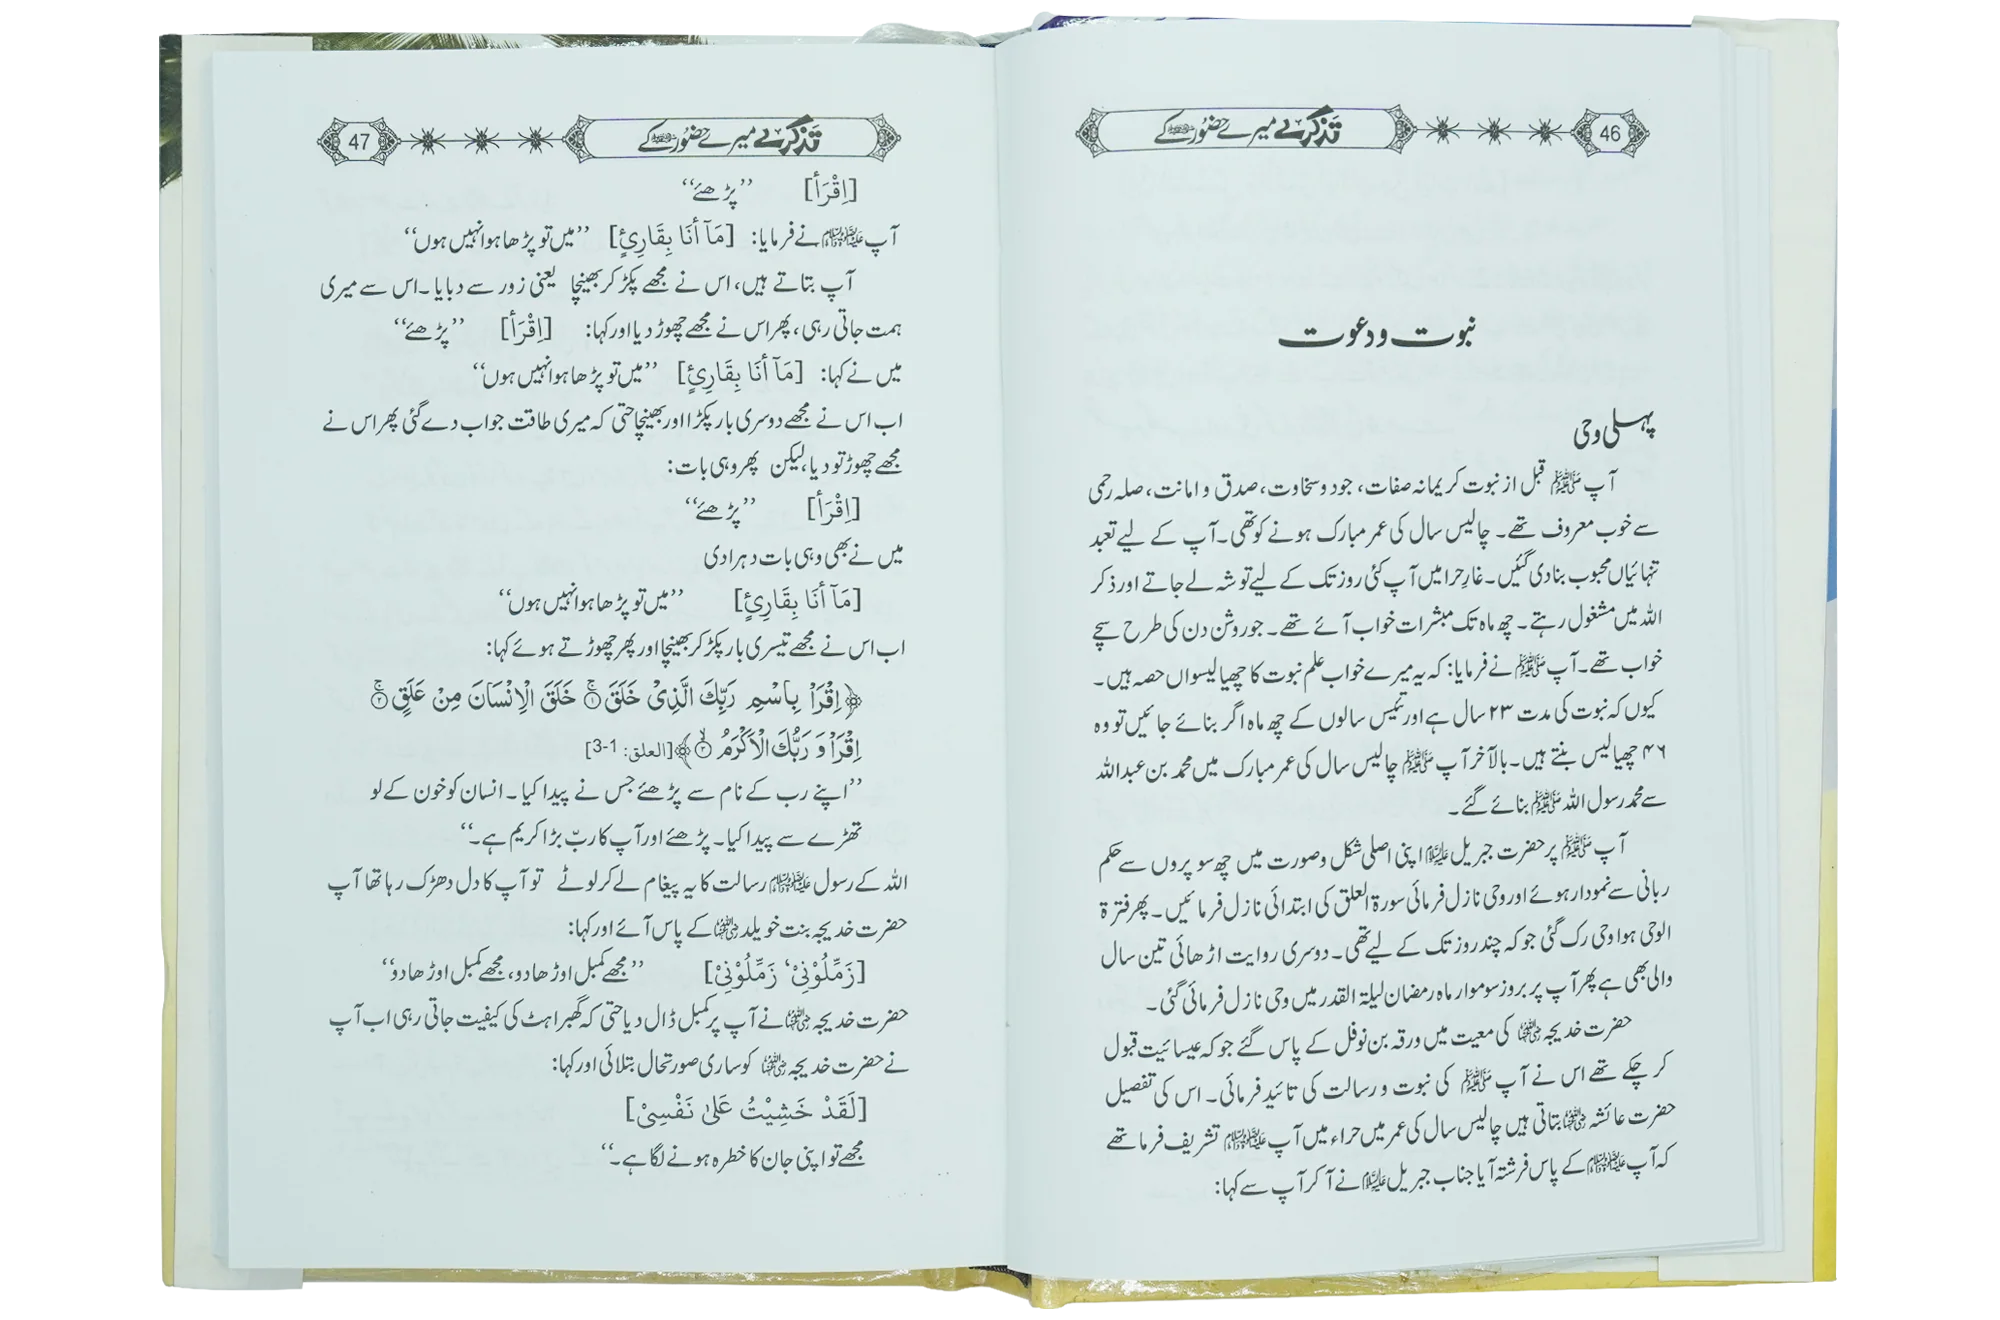 تذکرے میرے حضور ﷺ کے
46
نبوت و دعوت
پہلی وحی
آپ ﷺ قبل از نبوت کریمانہ صفات، جود و سخاوت، صدق و امانت، صلہ رحمی
سے خوب معروف تھے۔ چالیس سال کی عمر مبارک ہونے کو تھی۔ آپ کے لیے تعبد
تنہائیاں محبوب بنا دی گئیں۔ غارِ حرا میں آپ کئی روز تک کے لیے توشہ لے جاتے اور ذکر
اللہ میں مشغول رہتے۔ چھ ماہ تک مبشرات خواب آئے تھے۔ جو روشن دن کی طرح سچے
خواب تھے۔ آپ ﷺ نے فرمایا: کہ یہ میرے خواب علم نبوت کا چھیالیسواں حصہ ہیں۔
کیوں کہ نبوت کی مدت ۲۳ سال ہے اور تئیس سالوں کے چھ ماہ اگر بنائے جائیں تو وہ
۴۶ چھیالیس بنتے ہیں۔ بالآخر آپ ﷺ چالیس سال کی عمر مبارک میں محمد بن عبداللہ
سے محمد رسول اللہ ﷺ بنائے گئے۔
آپ ﷺ پر حضرت جبریل علیہ السلام اپنی اصلی شکل و صورت میں چھ سو پروں سے حکم
ربانی سے نمودار ہوئے اور وحی نازل فرمائی سورۃ العلق کی ابتدائی نازل فرمائیں۔ پھر فترۃ
الوحی ہوا وحی رک گئی جو کہ چند روز تک کے لیے تھی۔ دوسری روایت اڑھائی تین سال
والی بھی ہے پھر آپ پر بروز سوموار ماہ رمضان لیلۃ القدر میں وحی نازل فرمائی گئی۔
حضرت خدیجہ رضی اللہ عنہا کی معیت میں ورقہ بن نوفل کے پاس گئے جو کہ عیسائیت قبول
کر چکے تھے اس نے آپ ﷺ کی نبوت و رسالت کی تائید فرمائی۔ اس کی تفصیل
حضرت عائشہ رضی اللہ عنہا بتاتی ہیں چالیس سال کی عمر میں حراء میں آپ ﷺ تشریف فرما تھے
کہ آپ ﷺ کے پاس فرشتہ آیا جناب جبریل علیہ السلام نے آ کر آپ سے کہا:
تذکرے میرے حضور ﷺ کے
47
[اِقْرَأ] ’’پڑھئے‘‘
آپ ﷺ نے فرمایا: [مَآ أَنَا بِقَارِئٍ] ’’میں تو پڑھا ہوا نہیں ہوں‘‘
آپ بتاتے ہیں، اس نے مجھے پکڑ کر بھینچا یعنی زور سے دبایا۔ اس سے میری
ہمت جاتی رہی، پھر اس نے مجھے چھوڑ دیا اور کہا: [اِقْرَأ] ’’پڑھئے‘‘
میں نے کہا: [مَآ أَنَا بِقَارِئٍ] ’’میں تو پڑھا ہوا نہیں ہوں‘‘
اب اس نے مجھے دوسری بار پکڑا اور بھینچا حتی کہ میری طاقت جواب دے گئی پھر اس نے
مجھے چھوڑ تو دیا، لیکن پھر وہی بات:
[اِقْرَأ] ’’پڑھئے‘‘
میں نے بھی وہی بات دہرا دی
[مَآ أَنَا بِقَارِئٍ] ’’میں تو پڑھا ہوا نہیں ہوں‘‘
اب اس نے مجھے تیسری بار پکڑ کر بھینچا اور پھر چھوڑتے ہوئے کہا:
﴿اِقْرَاْ بِاسْمِ رَبِّكَ الَّذِیْ خَلَقَ ۚ۱ خَلَقَ الْاِنْسَانَ مِنْ عَلَقٍ ۚ۲
اِقْرَاْ وَ رَبُّكَ الْاَكْرَمُ ۙ۳﴾ [العلق: 1-3]
’’اپنے رب کے نام سے پڑھئے جس نے پیدا کیا۔ انسان کو خون کے لو
تھڑے سے پیدا کیا۔ پڑھئے اور آپ کا ربّ بڑا کریم ہے۔‘‘
اللہ کے رسول ﷺ رسالت کا یہ پیغام لے کر لوٹے تو آپ کا دل دھڑک رہا تھا آپ
حضرت خدیجہ بنت خویلد رضی اللہ عنہا کے پاس آئے اور کہا:
[زَمِّلُوْنِیْ، زَمِّلُوْنِیْ] ’’مجھے کمبل اوڑھا دو، مجھے کمبل اوڑھا دو‘‘
حضرت خدیجہ رضی اللہ عنہا نے آپ پر کمبل ڈال دیا حتی کہ گھبراہٹ کی کیفیت جاتی رہی اب آپ
نے حضرت خدیجہ رضی اللہ عنہا کو ساری صورتحال بتلائی اور کہا:
[لَقَدْ خَشِیْتُ عَلٰی نَفْسِیْ]
مجھے تو اپنی جان کا خطرہ ہونے لگا ہے۔‘‘